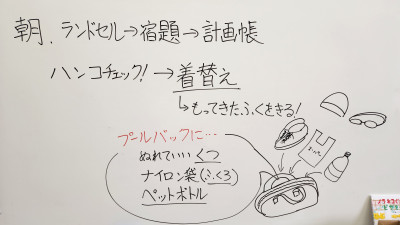 朝、ランドセル→宿題→計画帳
ハンコチェック！→着替え
↳もってきたふくをきる！
プールバックに…
ぬれていいくつ
ナイロン袋(ふくろ)
ペットボトル